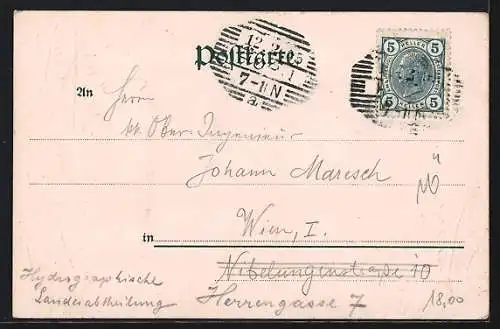 Postkarte
7-11N
a
5 HELLER 5
5 HELLER 5
An Herrn
kk. Ober-Ingenieur
Johann Maresch
Wien, I.
in
Nibelungenstrasse 10
Hydrographische
Landesabtheilung
Herrengasse 7
18,00